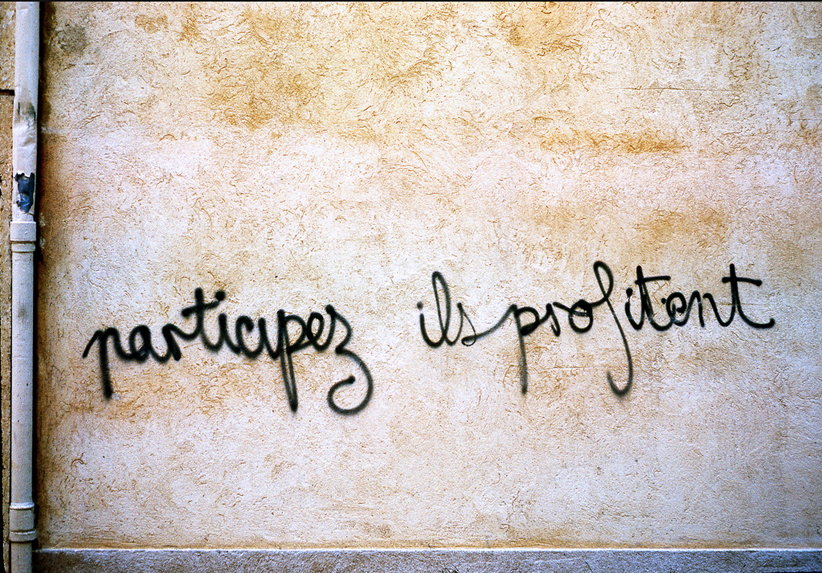 participez ils profitent